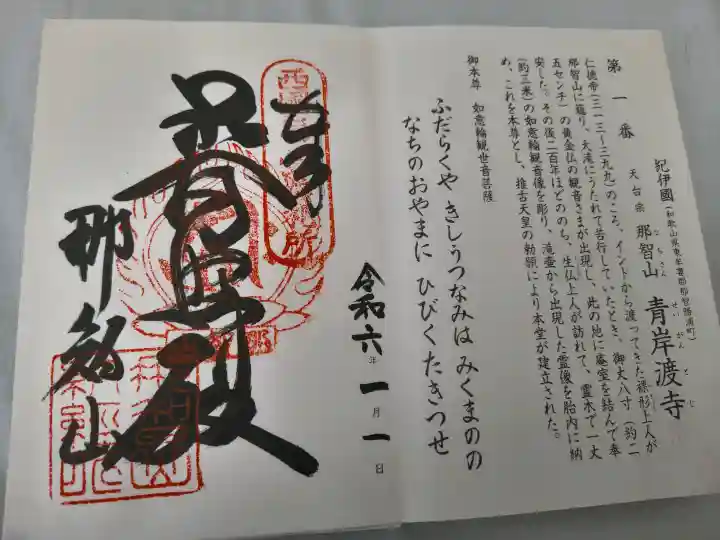 第一番
紀伊國(和歌山県東牟婁郡那智勝浦町)
天台宗 那智山 青岸渡寺
なちさん せいがんとじ
仁徳帝(三一三〜三九九)のころ、インドから渡ってきた裸形上人が
那智山に籠り、大滝にうたれて苦行していたとき、御丈八寸(約二
五センチ)の黄金仏の観音さまが出現し、此の地に庵室を結んで奉
安した。その後二百年ほどのち、生仏上人が訪れて、霊木で一丈
(約三米)の如意輪観音像を彫り、滝壺から出現した霊像を胎内に納
め、これを本尊とし、推古天皇の勅願により本堂が建立された。
御本尊 如意輪観世音菩薩
ふだらくや きしうつなみは みくまのの
なちのおやまに ひびくたきつせ
令和六年一月一日
奉拝
普照殿
那智山